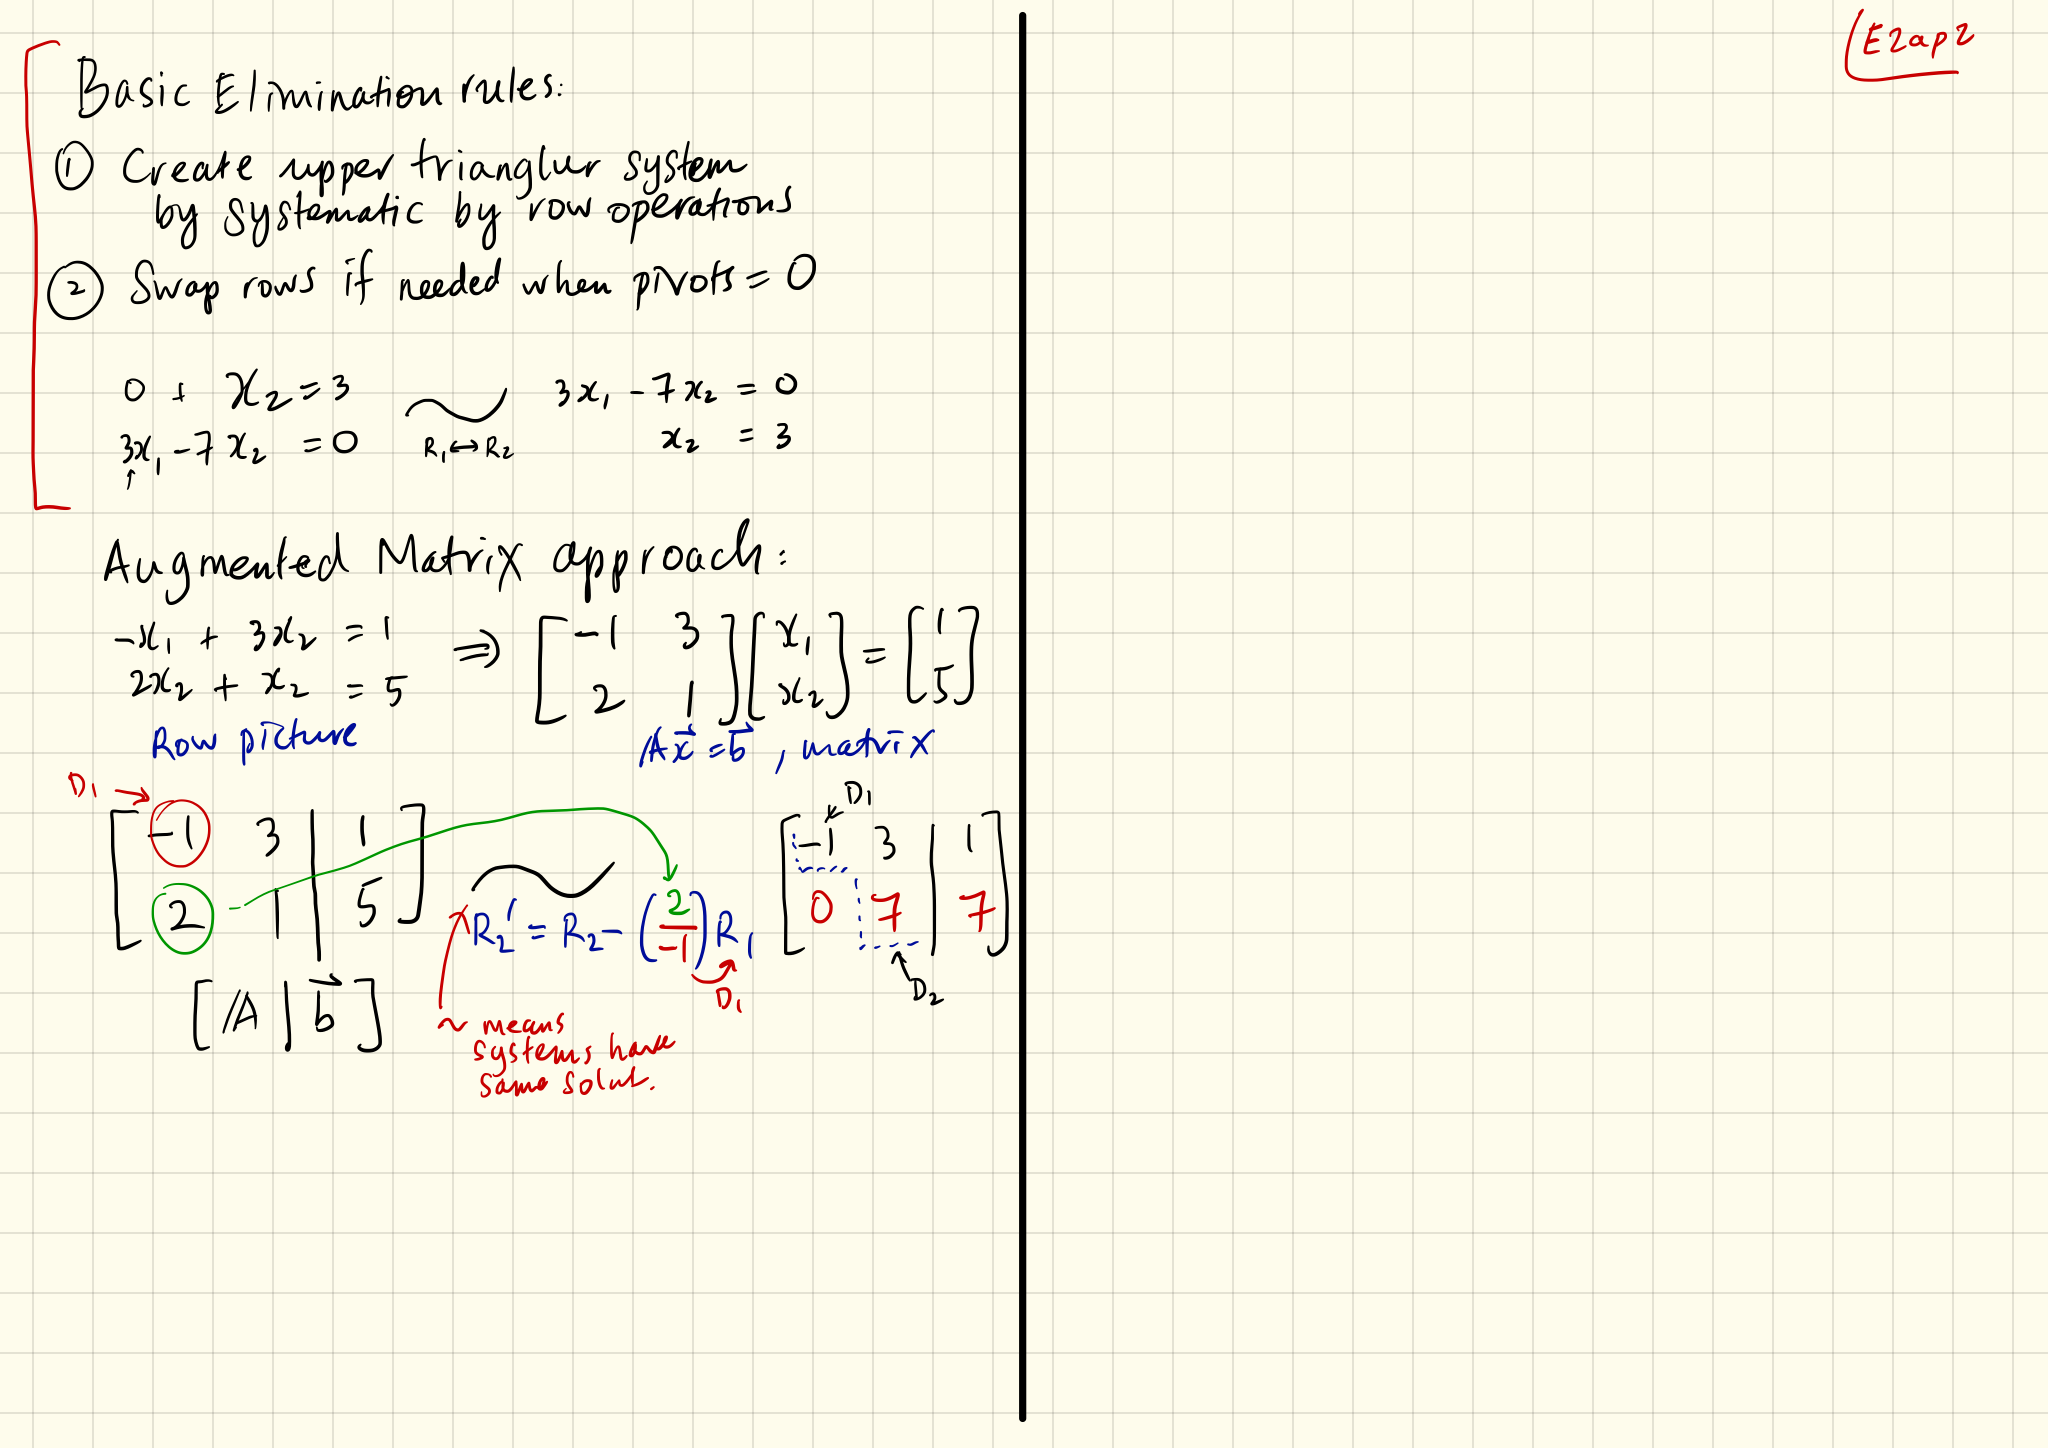 E2ap2
Basic Elimination rules:
① Create upper trianglur system
by systematic by row operations
② Swap rows if needed when pivots = 0
0 + x₂ = 3 ~ 3x₁ - 7x₂ = 0
3x₁ - 7x₂ = 0 R₁↔R₂ x₂ = 3
↑
Augmented Matrix approach:
-x₁ + 3x₂ = 1 ⇒ [-1 3] [x₁] = [1]
2x₂ + x₂ = 5 [2 1] [x₂] [5]
Row picture
Ax⃗ = b⃗, matrix
D₁ →
[-1 3 | 1]
[2 1 | 5]
~
R₂' = R₂ - (2/-1) R₁
D₁
D₁
[-1 3 | 1]
[0 7 | 7]
D₂
[A | b⃗]
~ means
systems have
same solut.